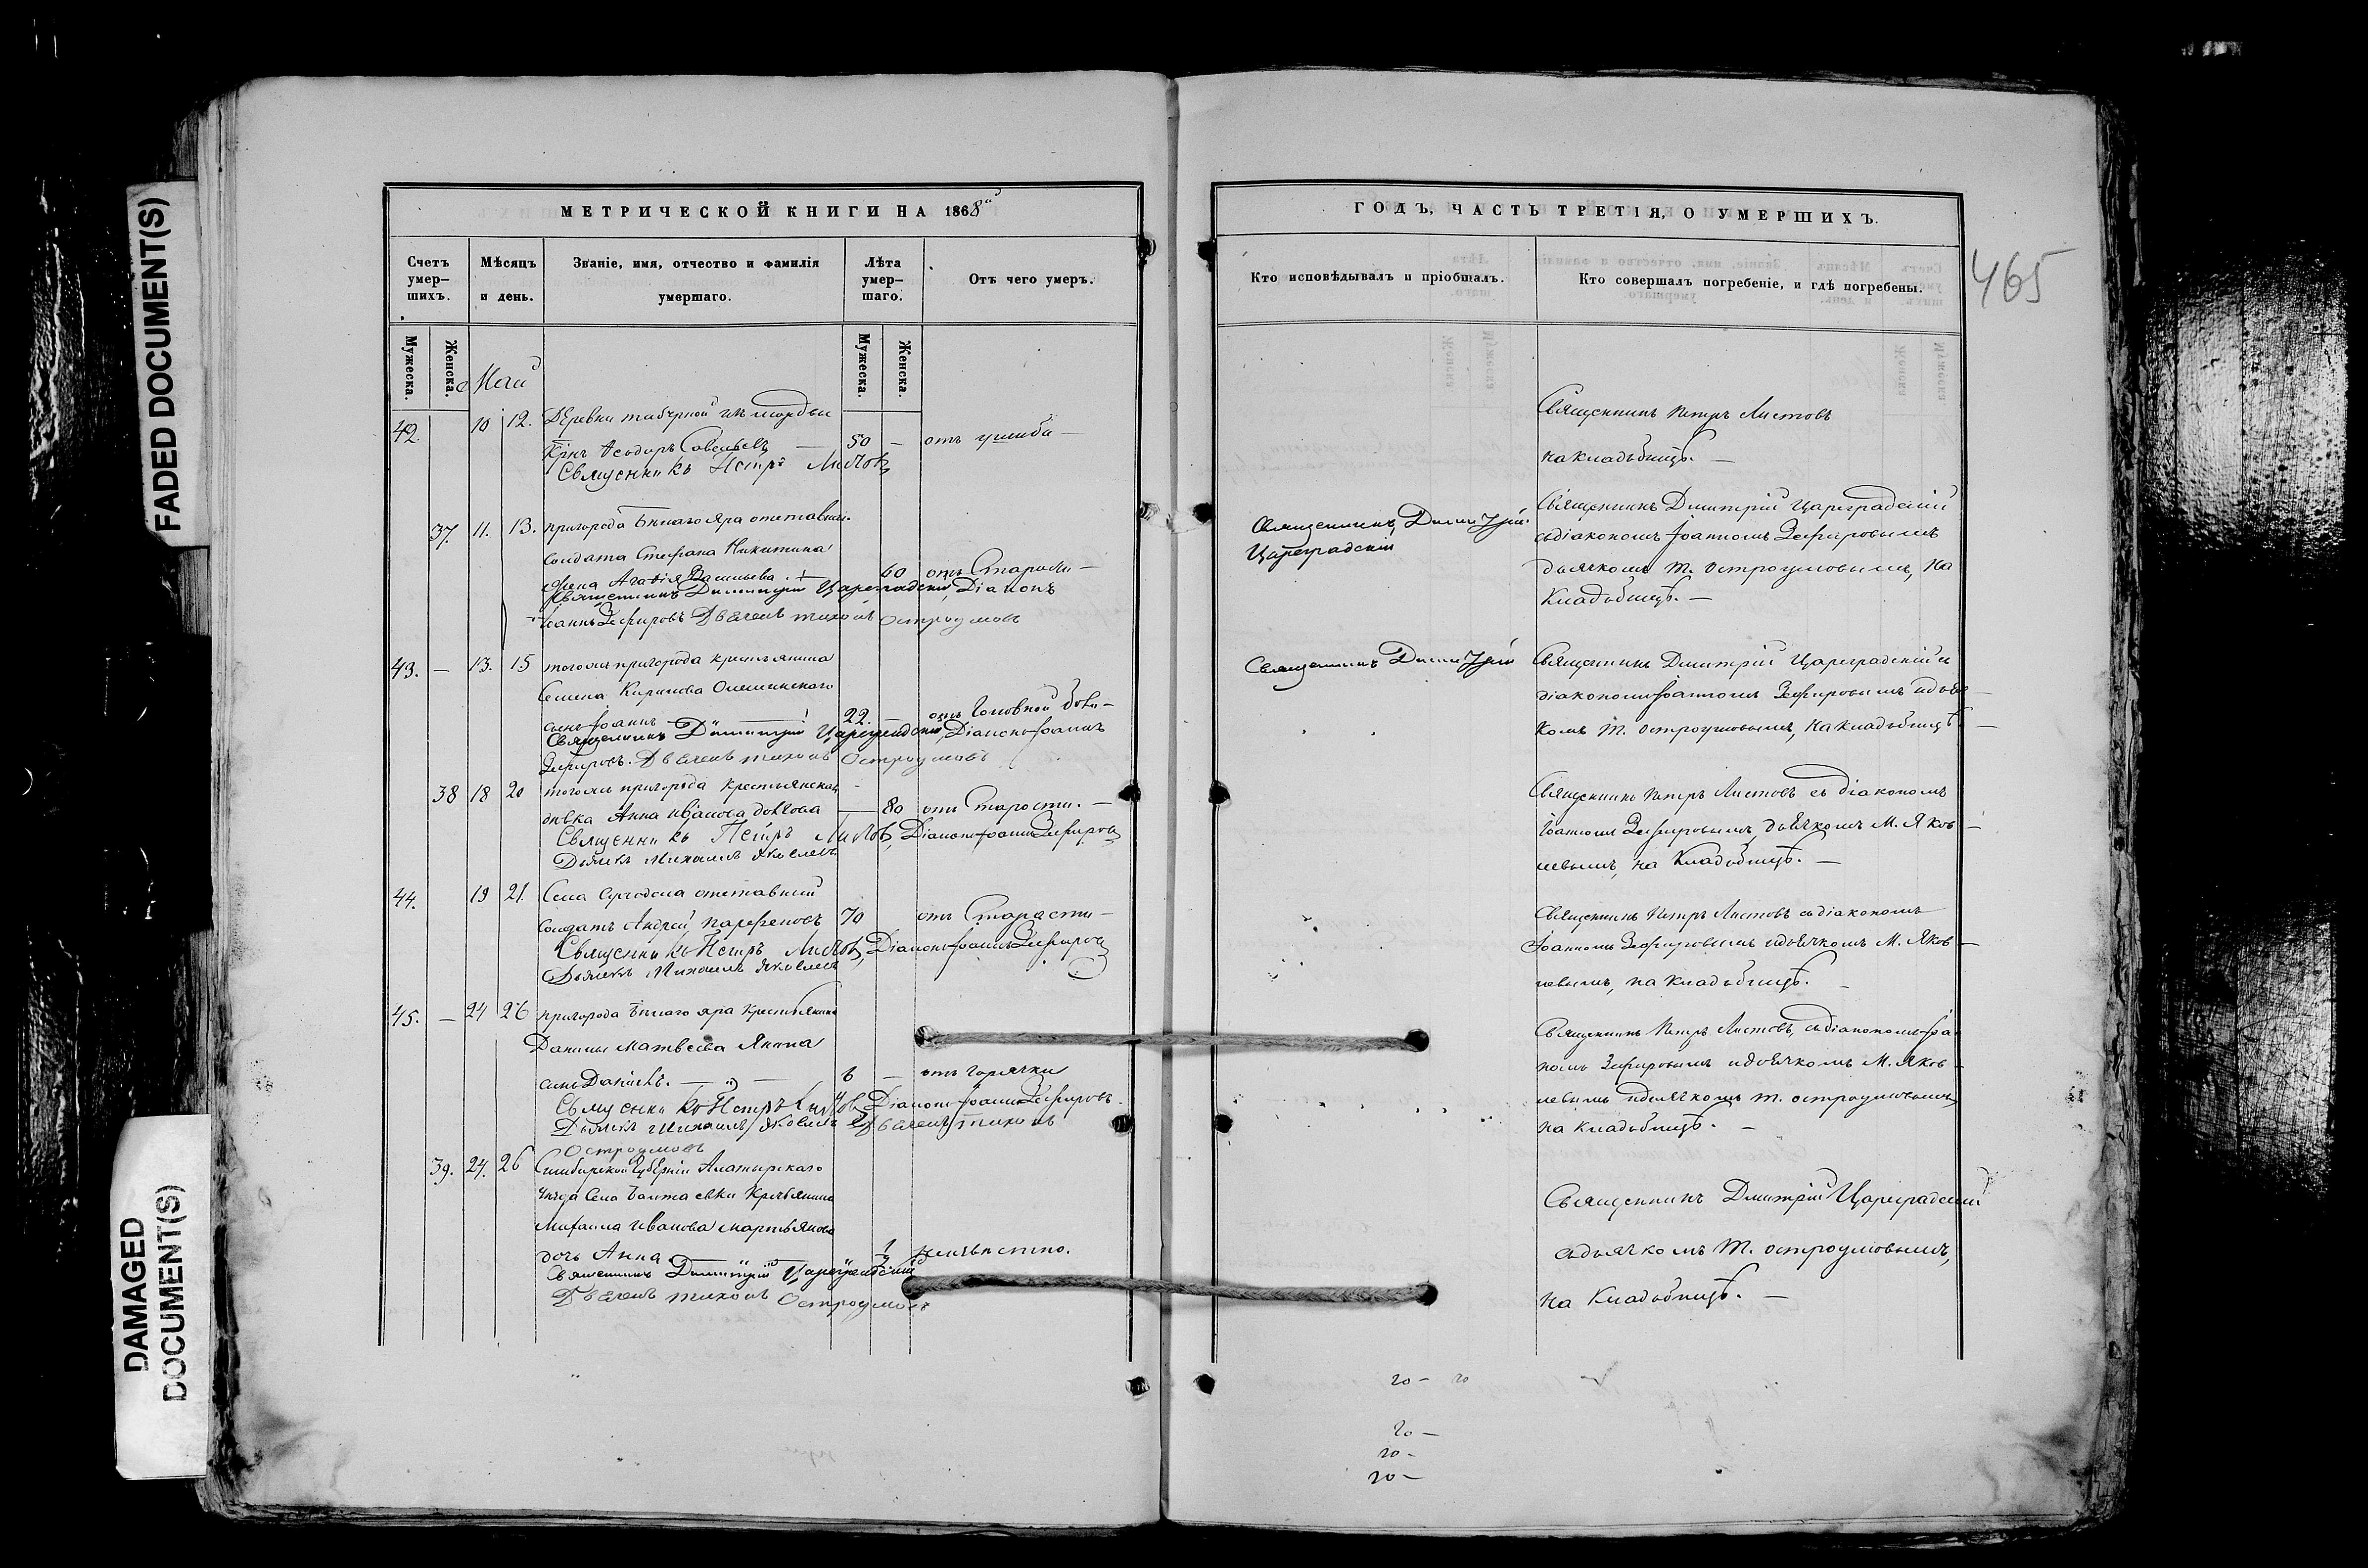 FADED DOCUMENT(S)
DAMAGED DOCUMENT(S)
МЕТРИЧЕСКОЙ КНИГИ НА 1868й
Счетъ умер-шихъ.
Мѣсяцъ и день.
Званіе, имя, отчество и фамилія умершаго.
Лѣта умер-шаго.
Отъ чего умеръ.
Мужеска.
Женска.
Май
Мужеска.
Женска.
42. 10 12. Деревни
Ѳеодоръ Савельевъ — 50 — отъ ушиба —
Священникъ Петръ Листовъ
37. 11. 13. пригорода Бѣлаго Яра отставнаго
солдата Стефана Никитина
жена Агафія Васильева. 60 отъ Старости —
Священникъ Димитрій Цареградскій, Діаконъ
Іоаннъ Зефировъ Дьячекъ Тихонъ Остроумовъ
43. — 13. 15 тогоже пригорода крестьянина
Семена Кирилова
сынъ Іоаннъ 22. — отъ головной боли —
Священникъ Димитрій Цареградскій, Діаконъ Іоаннъ
Зефировъ. Дьячекъ Тихонъ Остроумовъ
38 18 20 тогоже пригорода Крестьянская
дѣвка Анна Иванова — 80 отъ Старости. —
Священникъ Петръ Листовъ, Діаконъ Іоаннъ Зефировъ
Дьячекъ Михаилъ Яковлевъ
44. 19 21. Села отставный
солдатъ Андрей Парфеновъ 70 отъ Старости —
Священникъ Петръ Листовъ, Діаконъ Іоаннъ Зефировъ
Дьячекъ Михаилъ Яковлевъ
45. — 24 26 пригорода Бѣлаго Яра Крестьянина
Данилы Матвѣева
сынъ 6 — отъ горячки
Священникъ Петръ Листовъ Діаконъ Іоаннъ Зефировъ.
Дьячекъ Михаилъ Яковлевъ Дьячекъ Тихонъ
Остроумовъ
39. 24. 26 Симбирской Губерніи Алатырскаго
уѣзда Села Крестьянина
Михаила Иванова Мартьянова
дочь Анна 1/2 неизвѣстно.
Священникъ Димитрій Цареградскій
Дьячекъ Тихонъ Остроумовъ
ГОДЪ, ЧАСТЬ ТРЕТІЯ, О УМЕРШИХЪ.
465
Кто исповѣдывалъ и пріобщалъ.
Кто совершалъ погребеніе, и гдѣ погребены.
Священникъ Петръ Листовъ
на кладбищѣ. —
Священникъ Димитрій
Цареградскій
Священникъ Димитрій Цареградскій
съ діакономъ Іоанномъ Зефировымъ
дьячкомъ Т. Остроумовымъ, на
Кладбищѣ. —
Священникъ Димитрій
Священникъ Димитрій Цареградскій съ
діакономъ Іоанномъ Зефировымъ и дьяч-
комъ Т. Остроумовымъ, на кладбищѣ. —
Священникъ Петръ Листовъ съ діакономъ
Іоанномъ Зефировымъ, дьячкомъ М. Яков-
левымъ, на Кладбищѣ. —
Священникъ Петръ Листовъ съ діакономъ
Іоанномъ Зефировымъ и дьячкомъ М. Яков-
левымъ, на кладбищѣ. —
Священникъ Петръ Листовъ, съ діакономъ Іоан-
номъ Зефировымъ и дьячкомъ М. Яков-
левымъ и дьячкомъ Т. Остроумовымъ
на кладбищѣ. —
Священникъ Димитрій Цареградскій
съ дьячкомъ Т. Остроумовымъ,
на Кладбищѣ. —
20 — 20
20 —
20 —
20 —